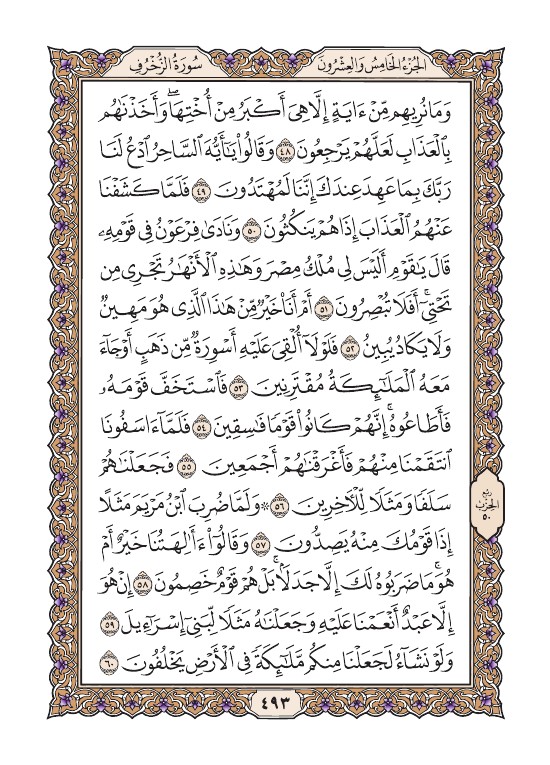 الجُزْءُ الخَامِسُ وَالعِشْرُونَ
سُورَةُ الزُّخْرُفِ
وَمَا نُرِيهِم مِّنْ ءَايَةٍ إِلَّا هِىَ أَكْبَرُ مِنْ أُخْتِهَاۖ وَأَخَذْنَٰهُم
بِٱلْعَذَابِ لَعَلَّهُمْ يَرْجِعُونَ ٤٨ وَقَالُوا۟ يَٰٓأَيُّهَ ٱلسَّاحِرُ ٱدْعُ لَنَا
رَبَّكَ بِمَا عَهِدَ عِندَكَ إِنَّنَا لَمُهْتَدُونَ ٤٩ فَلَمَّا كَشَفْنَا
عَنْهُمُ ٱلْعَذَابَ إِذَا هُمْ يَنكُثُونَ ٥٠ وَنَادَىٰ فِرْعَوْنُ فِى قَوْمِهِۦ
قَالَ يَٰقَوْمِ أَلَيْسَ لِى مُلْكُ مِصْرَ وَهَٰذِهِ ٱلْأَنْهَٰرُ تَجْرِى مِن
تَحْتِىٓۚ أَفَلَا تُبْصِرُونَ ٥١ أَمْ أَنَا۠ خَيْرٌ مِّنْ هَٰذَا ٱلَّذِى هُوَ مَهِينٌ
وَلَا يَكَادُ يُبِينُ ٥٢ فَلَوْلَآ أُلْقِىَ عَلَيْهِ أَسْوِرَةٌ مِّن ذَهَبٍ أَوْ جَآءَ
مَعَهُ ٱلْمَلَٰٓئِكَةُ مُقْتَرِنِينَ ٥٣ فَٱسْتَخَفَّ قَوْمَهُۥ
فَأَطَاعُوهُۚ إِنَّهُمْ كَانُوا۟ قَوْمًا فَٰسِقِينَ ٥٤ فَلَمَّآ ءَاسَفُونَا
ٱنتَقَمْنَا مِنْهُمْ فَأَغْرَقْنَٰهُمْ أَجْمَعِينَ ٥٥ فَجَعَلْنَٰهُمْ
سَلَفًا وَمَثَلًا لِّلْـَٔاخِرِينَ ٥٦ ۞ وَلَمَّا ضُرِبَ ٱبْنُ مَرْيَمَ مَثَلًا
إِذَا قَوْمُكَ مِنْهُ يَصِدُّونَ ٥٧ وَقَالُوٓا۟ ءَأَٰلِهَتُنَا خَيْرٌ أَمْ
هُوَۚ مَا ضَرَبُوهُ لَكَ إِلَّا جَدَلًۢاۚ بَلْ هُمْ قَوْمٌ خَصِمُونَ ٥٨ إِنْ هُوَ
إِلَّا عَبْدٌ أَنْعَمْنَا عَلَيْهِ وَجَعَلْنَٰهُ مَثَلًا لِّبَنِىٓ إِسْرَٰٓءِيلَ ٥٩
وَلَوْ نَشَآءُ لَجَعَلْنَا مِنكُم مَّلَٰٓئِكَةً فِى ٱلْأَرْضِ يَخْلُفُونَ ٦٠
ربع
الحزب
٥٠
٤٩٣